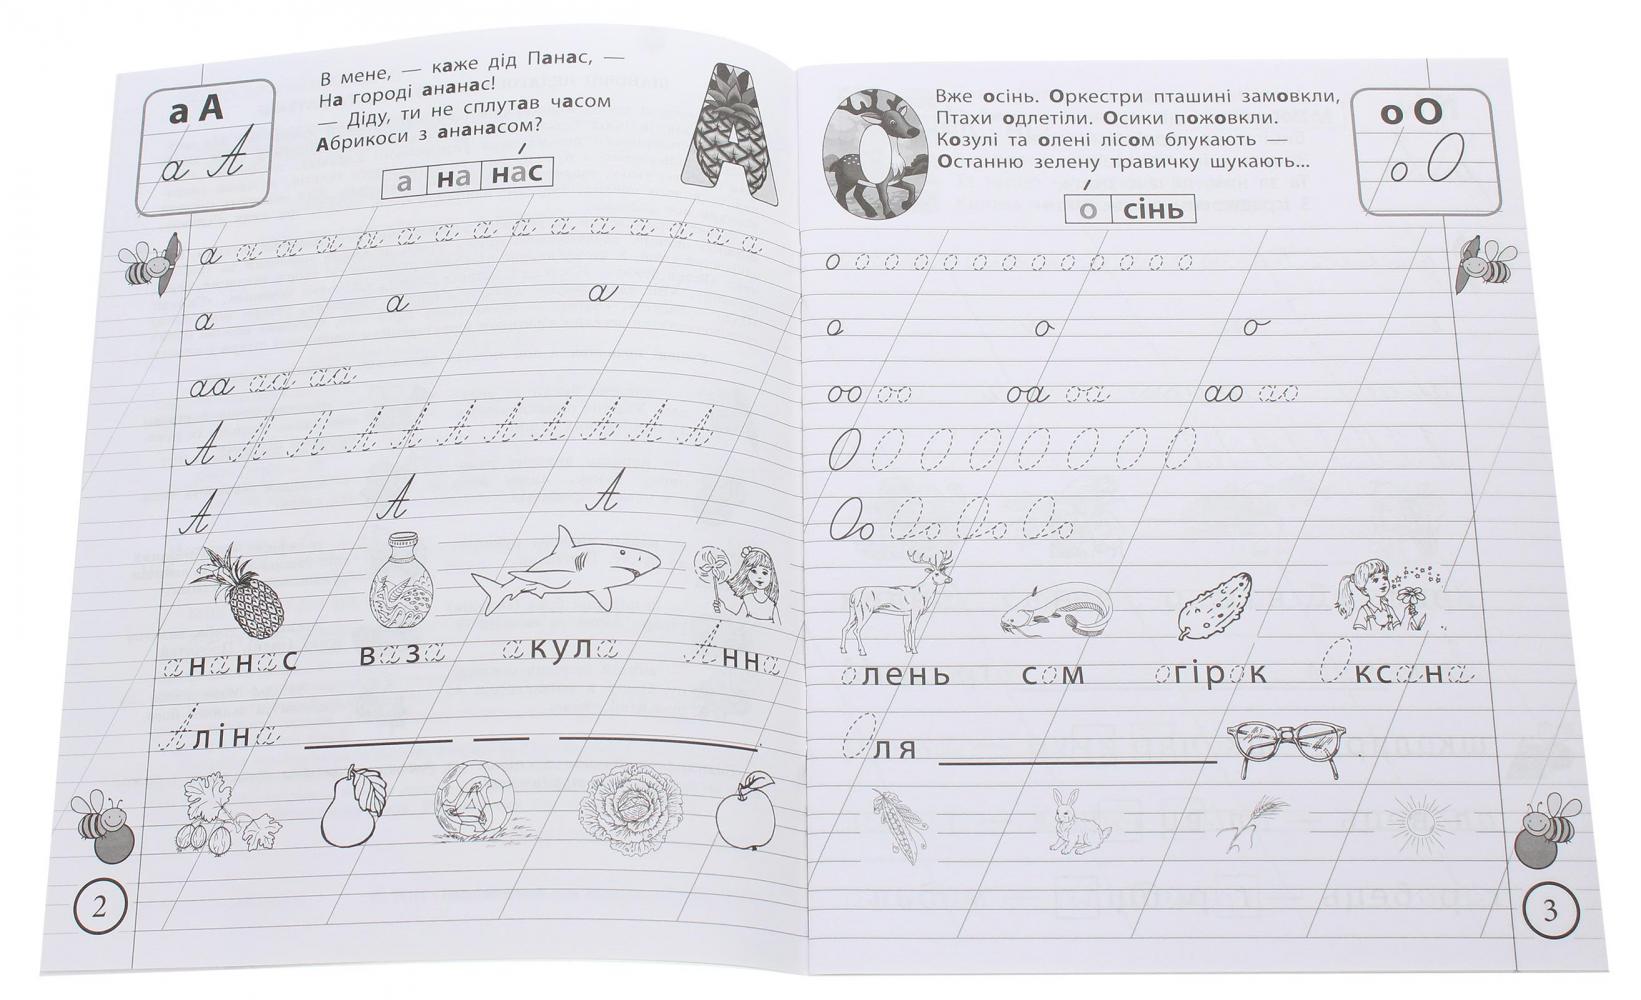 а А
а А
В мене, — каже дід Панас, —
На городі ананас!
— Діду, ти не сплутав часом
Абрикоси з ананасом?
А
а на нас
а а а а а а а а а а а а а а а
а а а
аа аа аа
А А А А А А А А А А А
А А А
ананас ваза акула Анна
Аліна
2
О
Вже осінь. Оркестри пташині замовкли,
Птахи одлетіли. Осики пожовкли.
Козулі та олені лісом блукають —
Останню зелену травичку шукають...
о О
о О
о сінь
о о о о о о о о о о о о о
о о о
оо оо оа оа ао ао
О О О О О О О О
Оо Оо Оо Оо
олень сом огірок Оксана
Оля
3